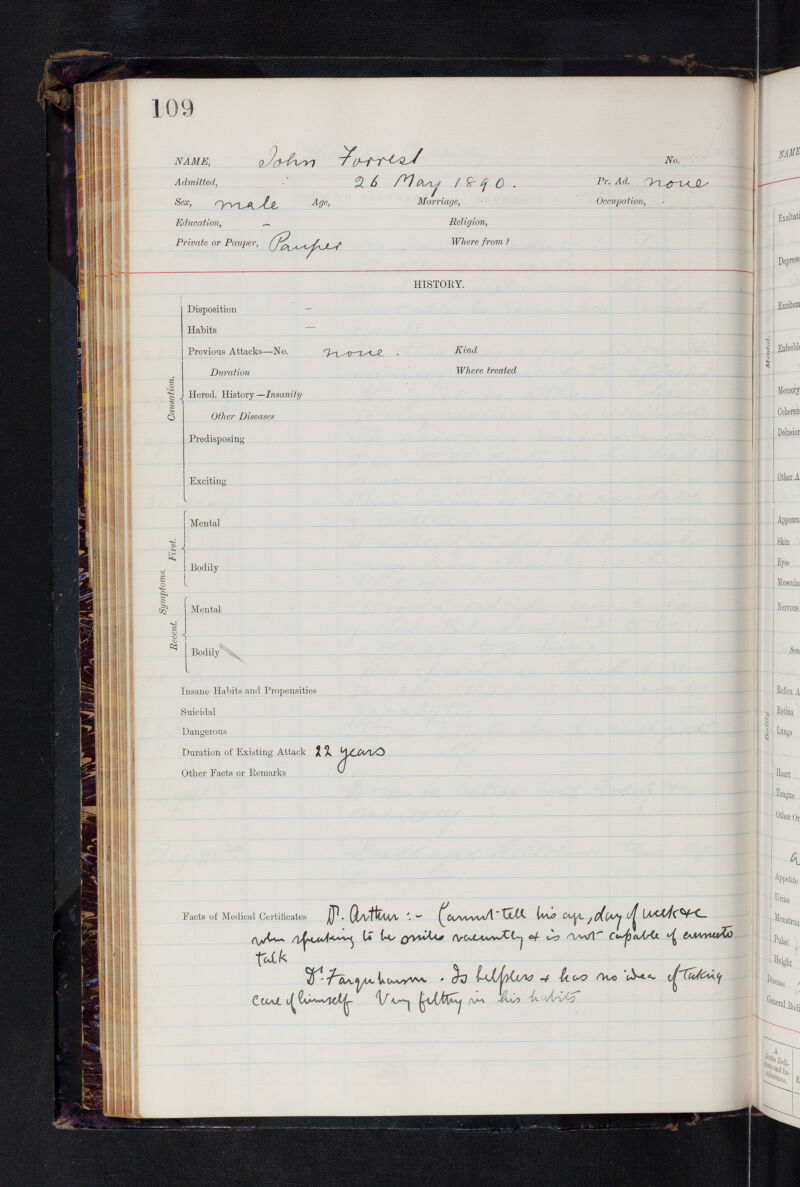 109
NAME, John Forrest No.
Admitted, 26 May 1890. Pr. Ad. none
Sex, male Age, Marriage, Occupation, -
Education, - Religion,
Private or Pauper, Pauper Where from?
HISTORY.
Causation.
Disposition -
Habits -
Previous Attacks—No. none. Kind
Duration Where treated
Hered. History—Insanity
Other Diseases
Predisposing
Exciting
Symptoms.
First.
Mental
Bodily
Recent.
Mental
Bodily
Insane Habits and Propensities
Suicidal
Dangerous
Duration of Existing Attack 22 years
Other Facts or Remarks
Facts of Medical Certificates Dr. Arthur :- Cannot tell his age, day of week &c
when speaking to he smiles vacantly & is not capable of
talk
Dr. Farquharson. Is helpless & has no idea of taking
care of himself Very filthy in his habits
NAME
Mental.
Exaltati
Depress
Excitem
Enfeeble
Memory
Coheren
Delusion
Other A
Bodily
Appeara
Skin
Eyes
Muscular
Nervous
Reflex A
Retina
Lungs
Heart
Tongue
Other Or
Appetite
Urine
Menstrua
Pulse
Height
Disease
General Bodi